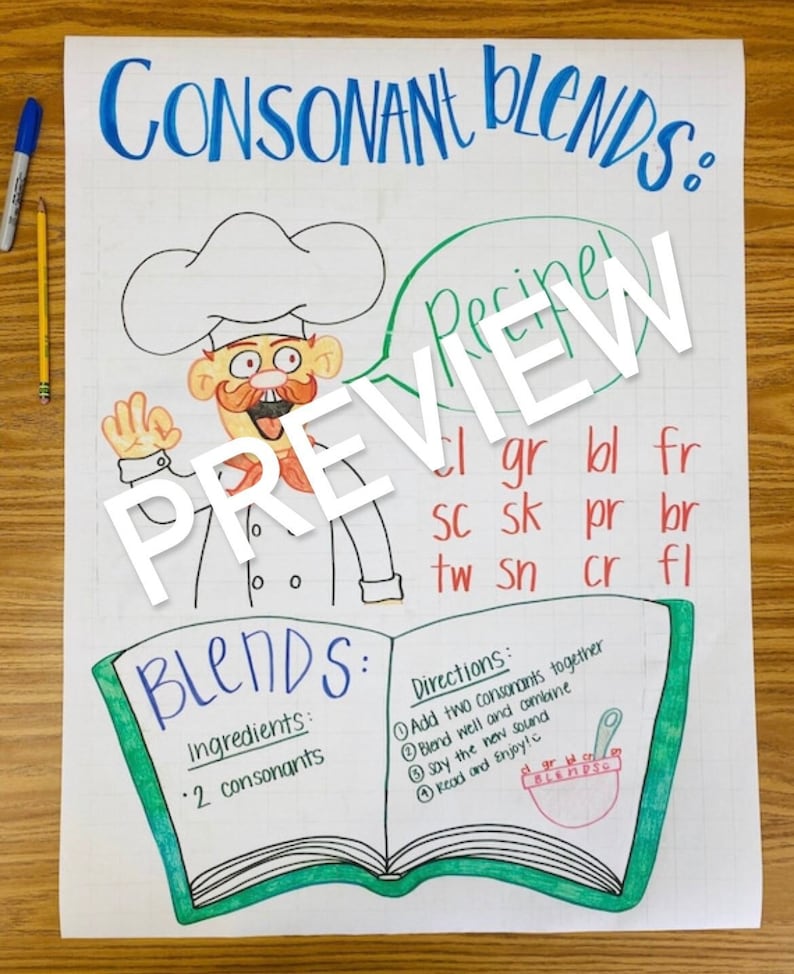 CONSONANT BLENDS:
Recipe!
PREVIEW
cl gr bl fr
sc sk pr br
tw sn cr fl
BLENDS:
Ingredients:
• 2 consonants
Directions:
① Add two consonants together
② Blend well and combine
③ Say the new sound
④ Read and Enjoy!
cl gr bl cr
BLENDS